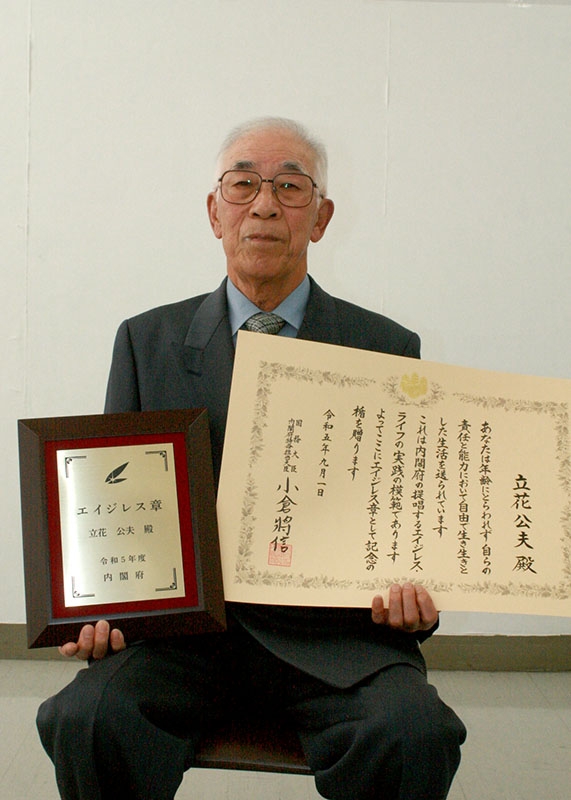 エイジレス章
立花 公夫 殿
令和5年度
内閣府
立花公夫殿
あなたは年齢にとらわれず 自らの
責任と能力において自由で生き生きと
した生活を送られています
これは内閣府の提唱するエイジレス
ライフの実践の模範であります
よってここにエイジレス章として記念の
楯を贈ります
令和五年九月一日
国務大臣
内閣府特命担当大臣
小倉將信